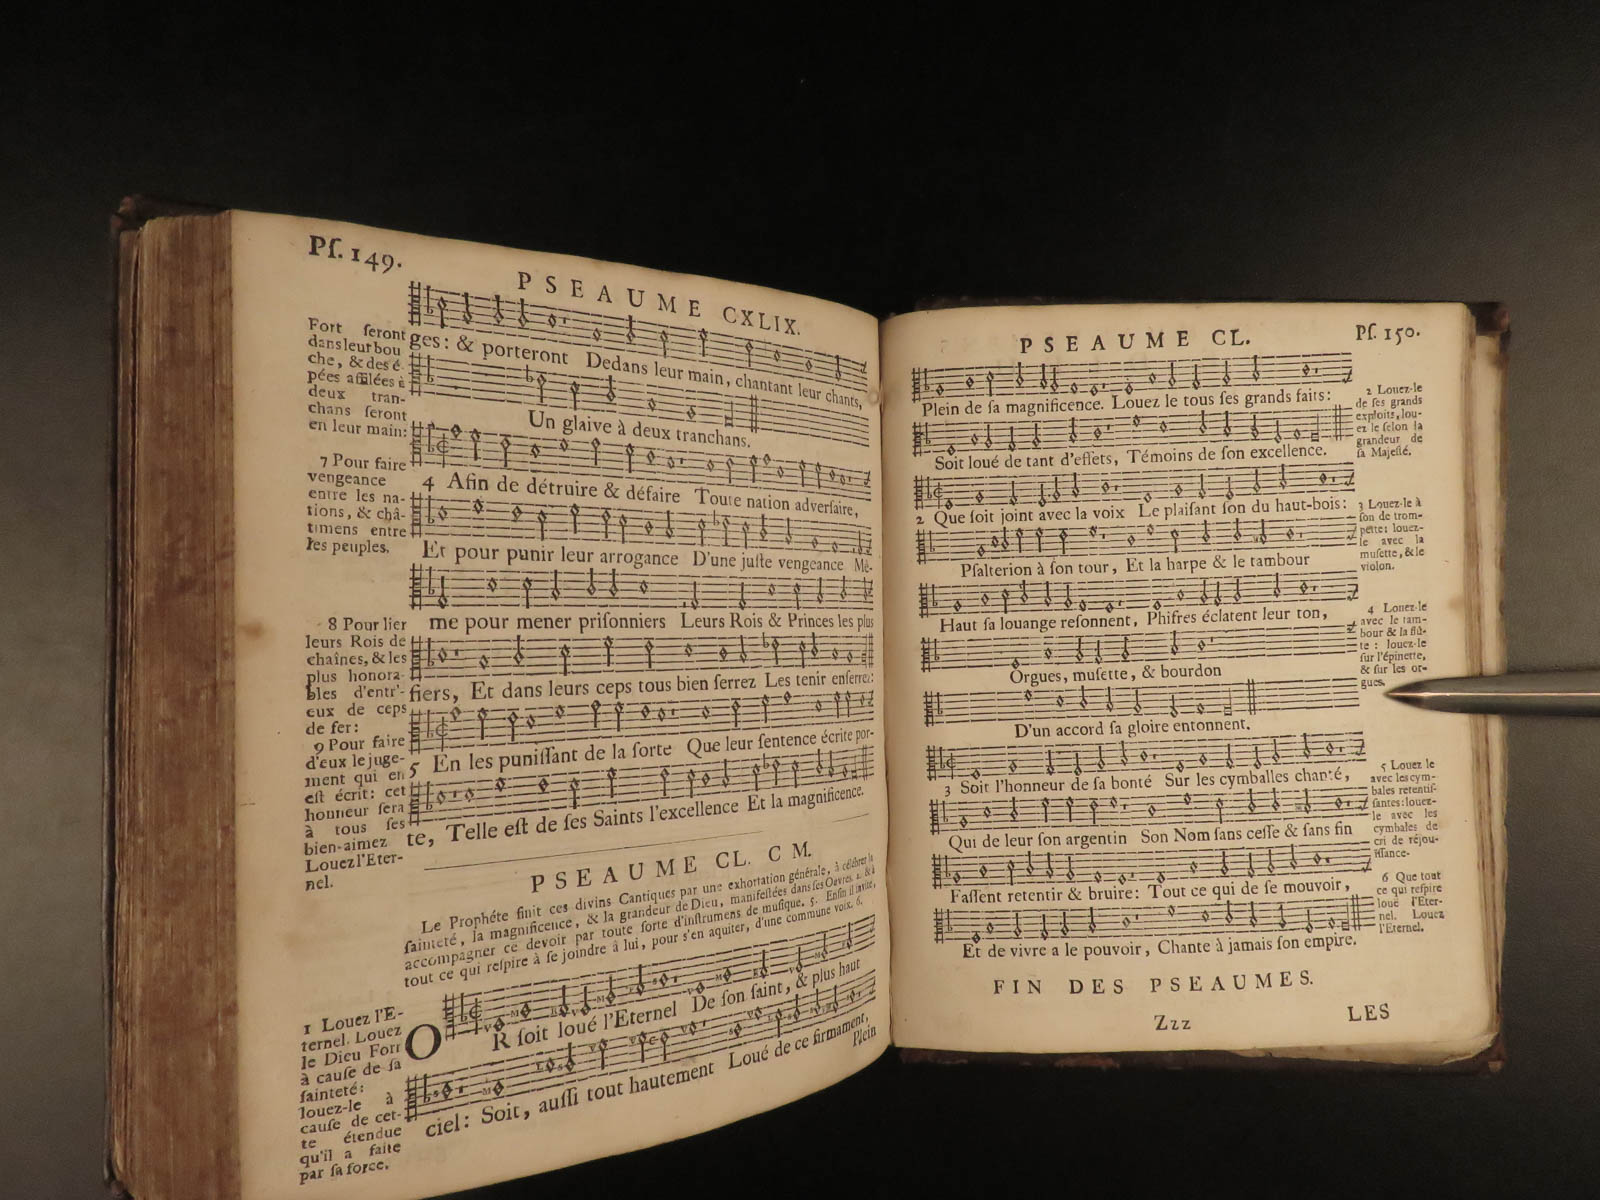 Pſ. 149.
PSEAUME CXLIX.
Fort ſeront
dans leur bou
che, & des é-
pées affilées à
deux tran-
chans ſeront
en leur main:
7 Pour faire
vengeance
entre les na-
tions, & châ-
timens entre
les peuples.
8 Pour lier
leurs Rois de
chaînes, & les
plus honora-
bles d'entr'-
eux de ceps
de fer:
9 Pour faire
d'eux le juge-
ment qui en
eſt écrit: cet
honneur ſera
à tous ſes
bien-aimez
Louez l'Eter-
nel.
ges: & porteront Dedans leur main, chantant leur chants,
Un glaive à deux tranchans.
4 Afin de détruire & défaire Toute nation adverſaire,
Et pour punir leur arrogance D'une juſte vengeance Mê-
me pour mener priſonniers Leurs Rois & Princes les plus
fiers, Et dans leurs ceps tous bien ſerrez Les tenir enſerrez:
5 En les puniſſant de la ſorte Que leur ſentence écrite por-
te, Telle eſt de ſes Saints l'excellence Et la magnificence.
PSEAUME CL. C M.
Le Prophéte finit ces divins Cantiques par une exhortation générale, à célébrer la
ſainteté, la magnificence, & la grandeur de Dieu, manifeſtées dans ſes Ouvres. 2. & à
accompagner ce devoir par toute ſorte d'inſtrumens de muſique. 5. Enfin il invite,
tout ce qui reſpire à ſe joindre à lui, pour s'en aquiter, d'une commune voix. 6.
1 Louez l'E-
ternel. Louez
le Dieu Fort
à cauſe de ſa
ſainteté:
louez-le à
cauſe de cet-
te étendue
qu'il a faite
par ſa force.
OR ſoit loué l'Eternel De ſon ſaint, & plus haut
ciel: Soit, auſſi tout hautement Loué de ce firmament,
Plein
PSEAUME CL.
Pſ. 150.
Plein de ſa magnificence. Louez le tous ſes grands faits:
Soit loué de tant d'effets, Témoins de ſon excellence.
2 Que ſoit joint avec la voix Le plaiſant ſon du haut-bois:
Pſalterion à ſon tour, Et la harpe & le tambour
Haut ſa louange reſonnent, Phifres éclatent leur ton,
Orgues, muſette, & bourdon
D'un accord ſa gloire entonnent.
3 Soit l'honneur de ſa bonté Sur les cymballes chanté,
Qui de leur ſon argentin Son Nom ſans ceſſe & ſans fin
Faſſent retentir & bruire: Tout ce qui de ſe mouvoir,
Et de vivre a le pouvoir, Chante à jamais ſon empire.
2 Louez-le
de ſes grands
exploits, lou-
ez le ſelon la
grandeur de
ſa Majeſté.
3 Louez-le à
ſon de trom-
pette: louez-
le avec la
muſette, & le
violon.
4 Louez-le
avec le tam-
bour & la flû-
te: louez-le
ſur l'épinette,
& ſur les or-
gues.
5 Louez le
avec les cym-
bales retentiſ-
ſantes: louez-
le avec les
cymbales de
cri de réjou-
iſſance.
6 Que tout
ce qui reſpire
loue l'Eter-
nel. Louez
l'Eternel.
FIN DES PSEAUMES.
Zzz
LES